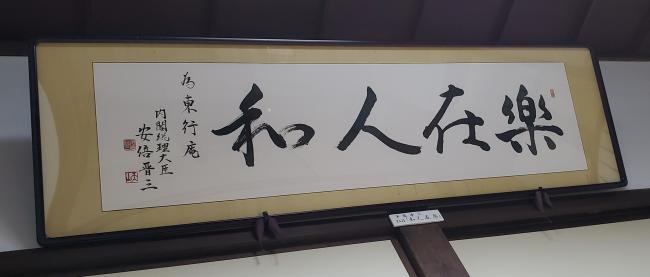 樂在人和
為東行庵
内閣総理大臣
安倍晋三